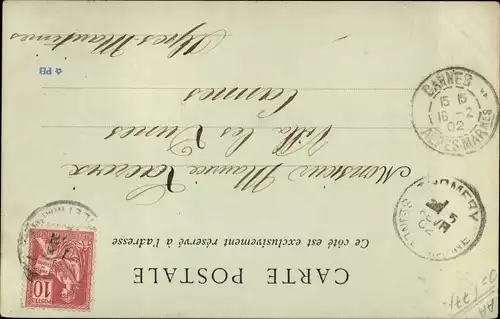 CARTE POSTALE
Ce côté est exclusivement réservé à l'adresse
Monsieur Maurice
Villa les Dunes
Cannes
Alpes-Maritimes
PB
POSTES
10
CANNES
15 15
16 -2
02
ALPES-MARMES
THOMERY
02